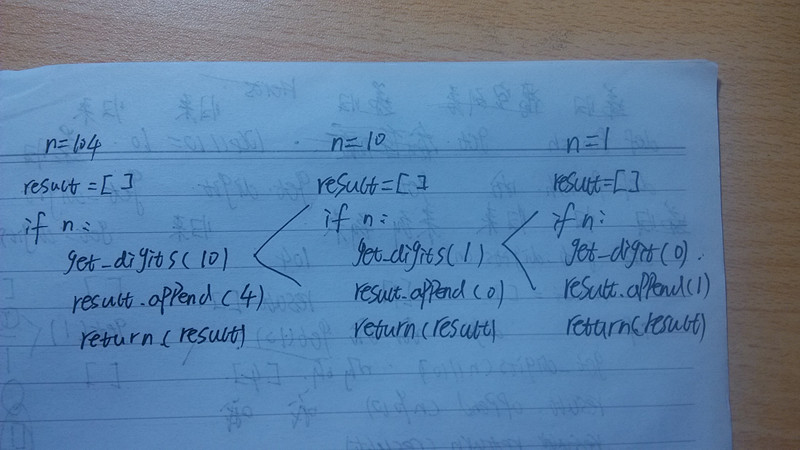 n=104
result=[]
if n:
get_digits(10)
result.append(4)
return(result)
n=10
result=[]
if n:
get_digits(1)
result.append(0)
return(result)
n=1
result=[]
if n:
get_digit(0).
result.append(1)
return(result)